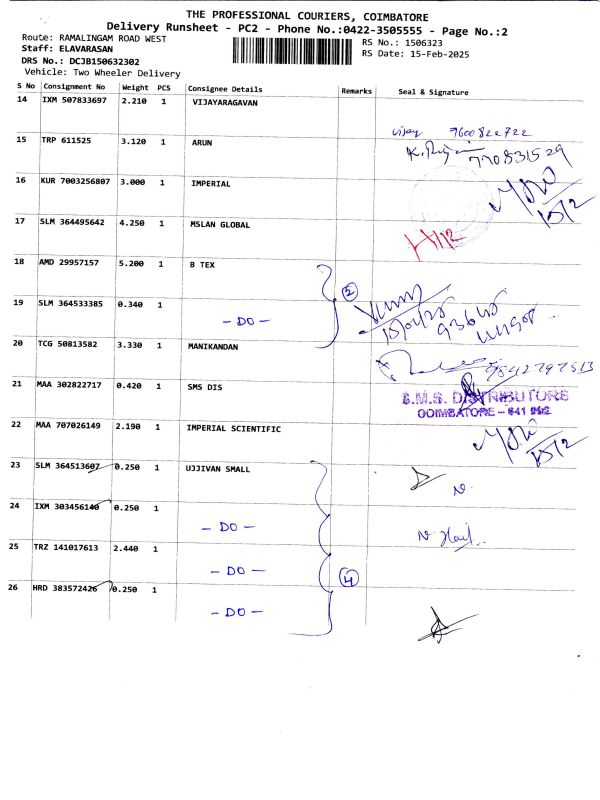 THE PROFESSIONAL COURIERS, COIMBATORE
Delivery Runsheet - PC2 - Phone No.:0422-3505555 - Page No.:2
Route: RAMALINGAM ROAD WEST
RS No.: 1506323
Staff: ELAVARASAN
RS Date: 15-Feb-2025
DRS No.: DCJB150632302
Vehicle: Two Wheeler Delivery
S No Consignment No Weight PCS Consignee Details Remarks Seal & Signature
14 IXM 507833697 2.210 1 VIJAYARAGAVAN
vijay 9600822722
15 TRP 611525 3.120 1 ARUN
7708531529
16 KUR 7003256807 3.000 1 IMPERIAL
15/2
17 SLM 364495642 4.250 1 MSLAN GLOBAL
18 AMD 29957157 5.200 1 B TEX
2
19 SLM 364533385 0.340 1 - DO -
20 TCG 50813582 3.330 1 MANIKANDAN
9842797513
21 MAA 302822717 0.420 1 SMS DIS
S.M.S. DISTRIBUTORS
COIMBATORE - 641 012
22 MAA 707026149 2.190 1 IMPERIAL SCIENTIFIC
15/2
23 SLM 364513607 0.250 1 UJJIVAN SMALL
24 IXM 303456140 0.250 1 - DO -
25 TRZ 141017613 2.440 1 - DO -
4
26 HRD 383572426 0.250 1 - DO -